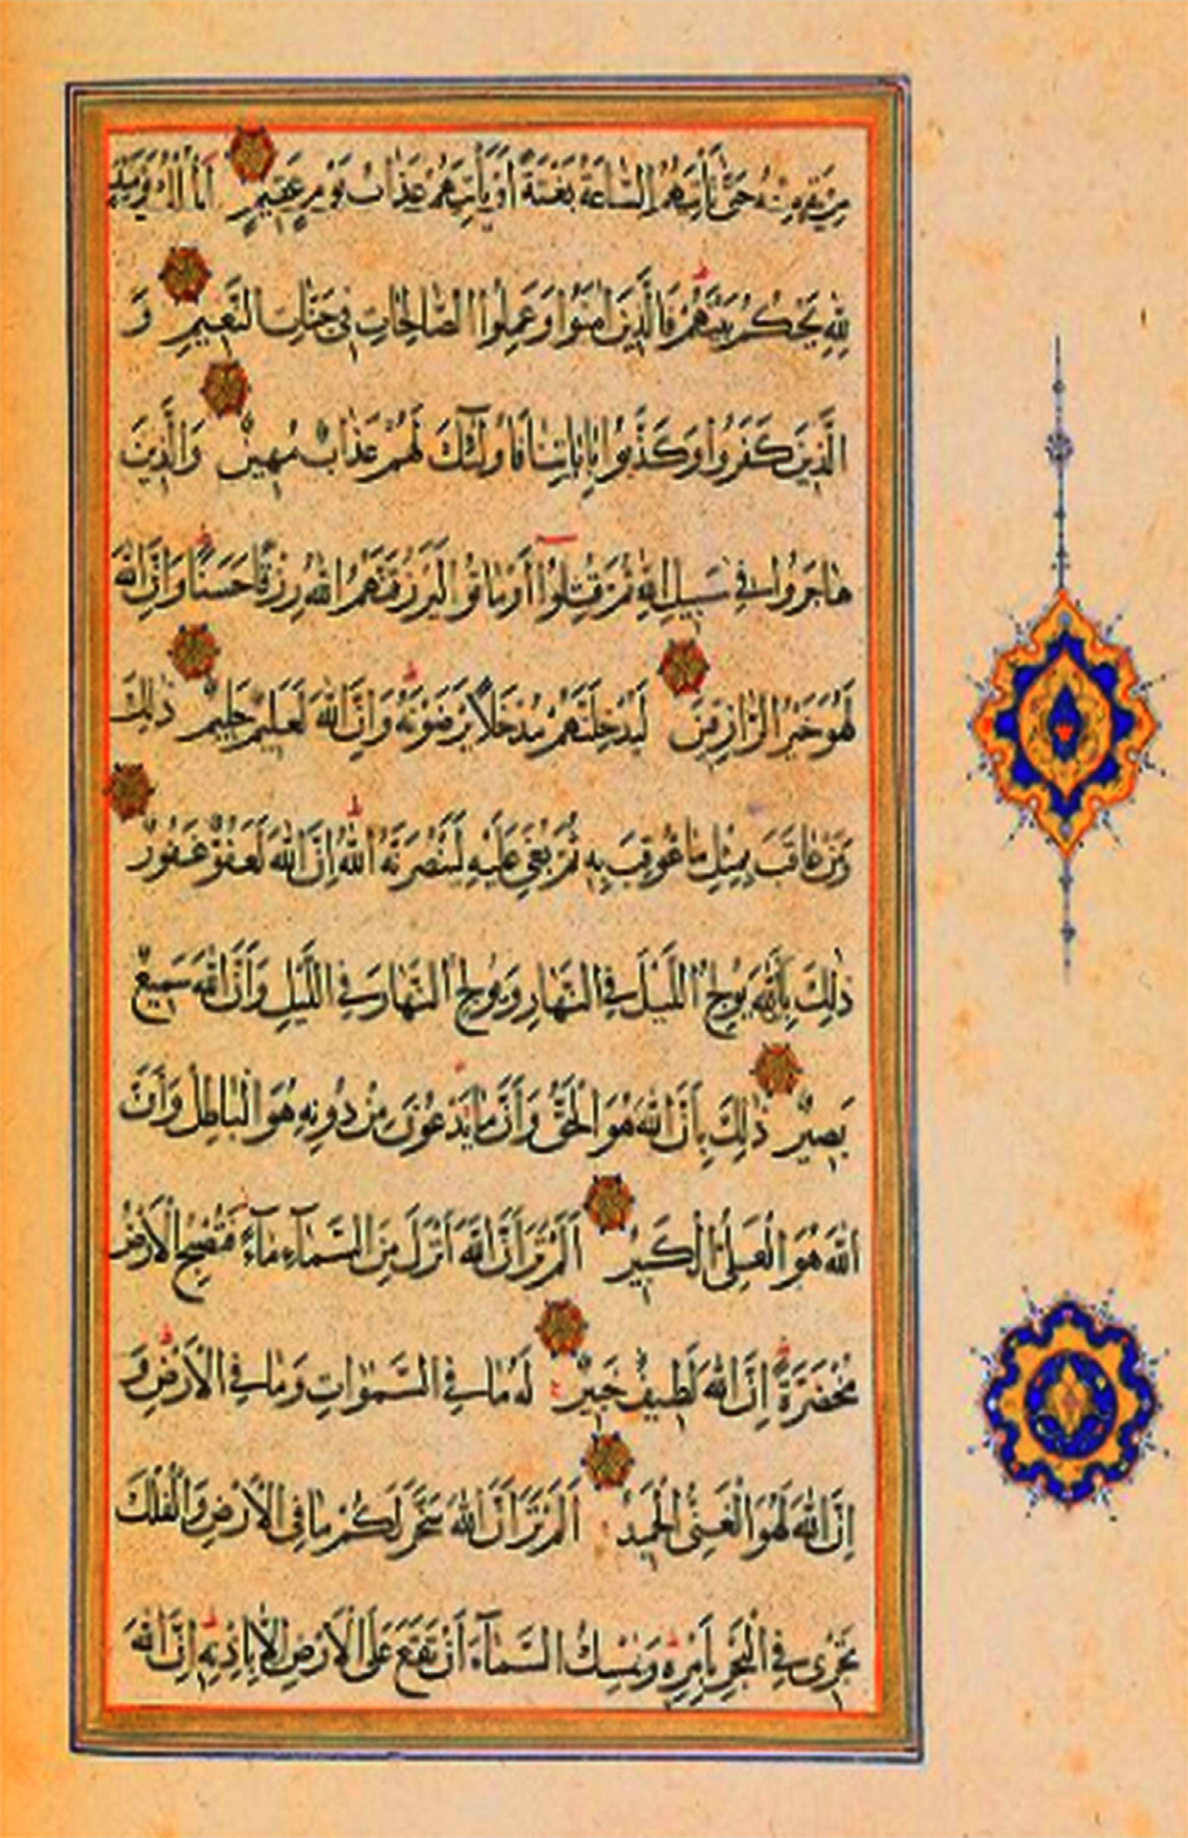 مِرْيَةٍ مِنْهُ حَتّٰى تَأْتِيَهُمُ السَّاعَةُ بَغْتَةً اَوْ يَأْتِيَهُمْ عَذَابُ يَوْمٍ عَقِيمٍ اَلْمُلْكُ يَوْمَئِذٍ
لِلّٰهِ يَحْكُمُ بَيْنَهُمْ فَالَّذِينَ اٰمَنُوا وَعَمِلُوا الصَّالِحَاتِ فِى جَنَّاتِ النَّعِيمِ وَ
الَّذِينَ كَفَرُوا وَكَذَّبُوا بِاٰيَاتِنَا فَاُولٰئِكَ لَهُمْ عَذَابٌ مُهِينٌ وَالَّذِينَ
هَاجَرُوا فِى سَبِيلِ اللّٰهِ ثُمَّ قُتِلُوا اَوْ مَاتُوا لَيَرْزُقَنَّهُمُ اللّٰهُ رِزْقًا حَسَنًا وَاِنَّ اللّٰهَ
لَهُوَ خَيْرُ الرَّازِقِينَ لَيُدْخِلَنَّهُمْ مُدْخَلًا يَرْضَوْنَهُ وَاِنَّ اللّٰهَ لَعَلِيمٌ حَلِيمٌ ذٰلِكَ
وَمَنْ عَاقَبَ بِمِثْلِ مَا عُوقِبَ بِهِ ثُمَّ بُغِىَ عَلَيْهِ لَيَنْصُرَنَّهُ اللّٰهُ اِنَّ اللّٰهَ لَعَفُوٌّ غَفُورٌ
ذٰلِكَ بِاَنَّ اللّٰهَ يُولِجُ اللَّيْلَ فِى النَّهَارِ وَيُولِجُ النَّهَارَ فِى اللَّيْلِ وَاَنَّ اللّٰهَ سَمِيعٌ
بَصِيرٌ ذٰلِكَ بِاَنَّ اللّٰهَ هُوَ الْحَقُّ وَاَنَّ مَا يَدْعُونَ مِنْ دُونِهِ هُوَ الْبَاطِلُ وَاَنَّ
اللّٰهَ هُوَ الْعَلِىُّ الْكَبِيرُ اَلَمْ تَرَ اَنَّ اللّٰهَ اَنْزَلَ مِنَ السَّمَآءِ مَآءً فَتُصْبِحُ الْاَرْضُ
مُخْضَرَّةً اِنَّ اللّٰهَ لَطِيفٌ خَبِيرٌ لَهُ مَا فِى السَّمٰوَاتِ وَمَا فِى الْاَرْضِ وَ
اِنَّ اللّٰهَ لَهُوَ الْغَنِىُّ الْحَمِيدُ اَلَمْ تَرَ اَنَّ اللّٰهَ سَخَّرَ لَكُمْ مَا فِى الْاَرْضِ وَالْفُلْكَ
تَجْرِى فِى الْبَحْرِ بِاَمْرِهِ وَيُمْسِكُ السَّمَآءَ اَنْ تَقَعَ عَلَى الْاَرْضِ اِلَّا بِاِذْنِهِ اِنَّ اللّٰهَ